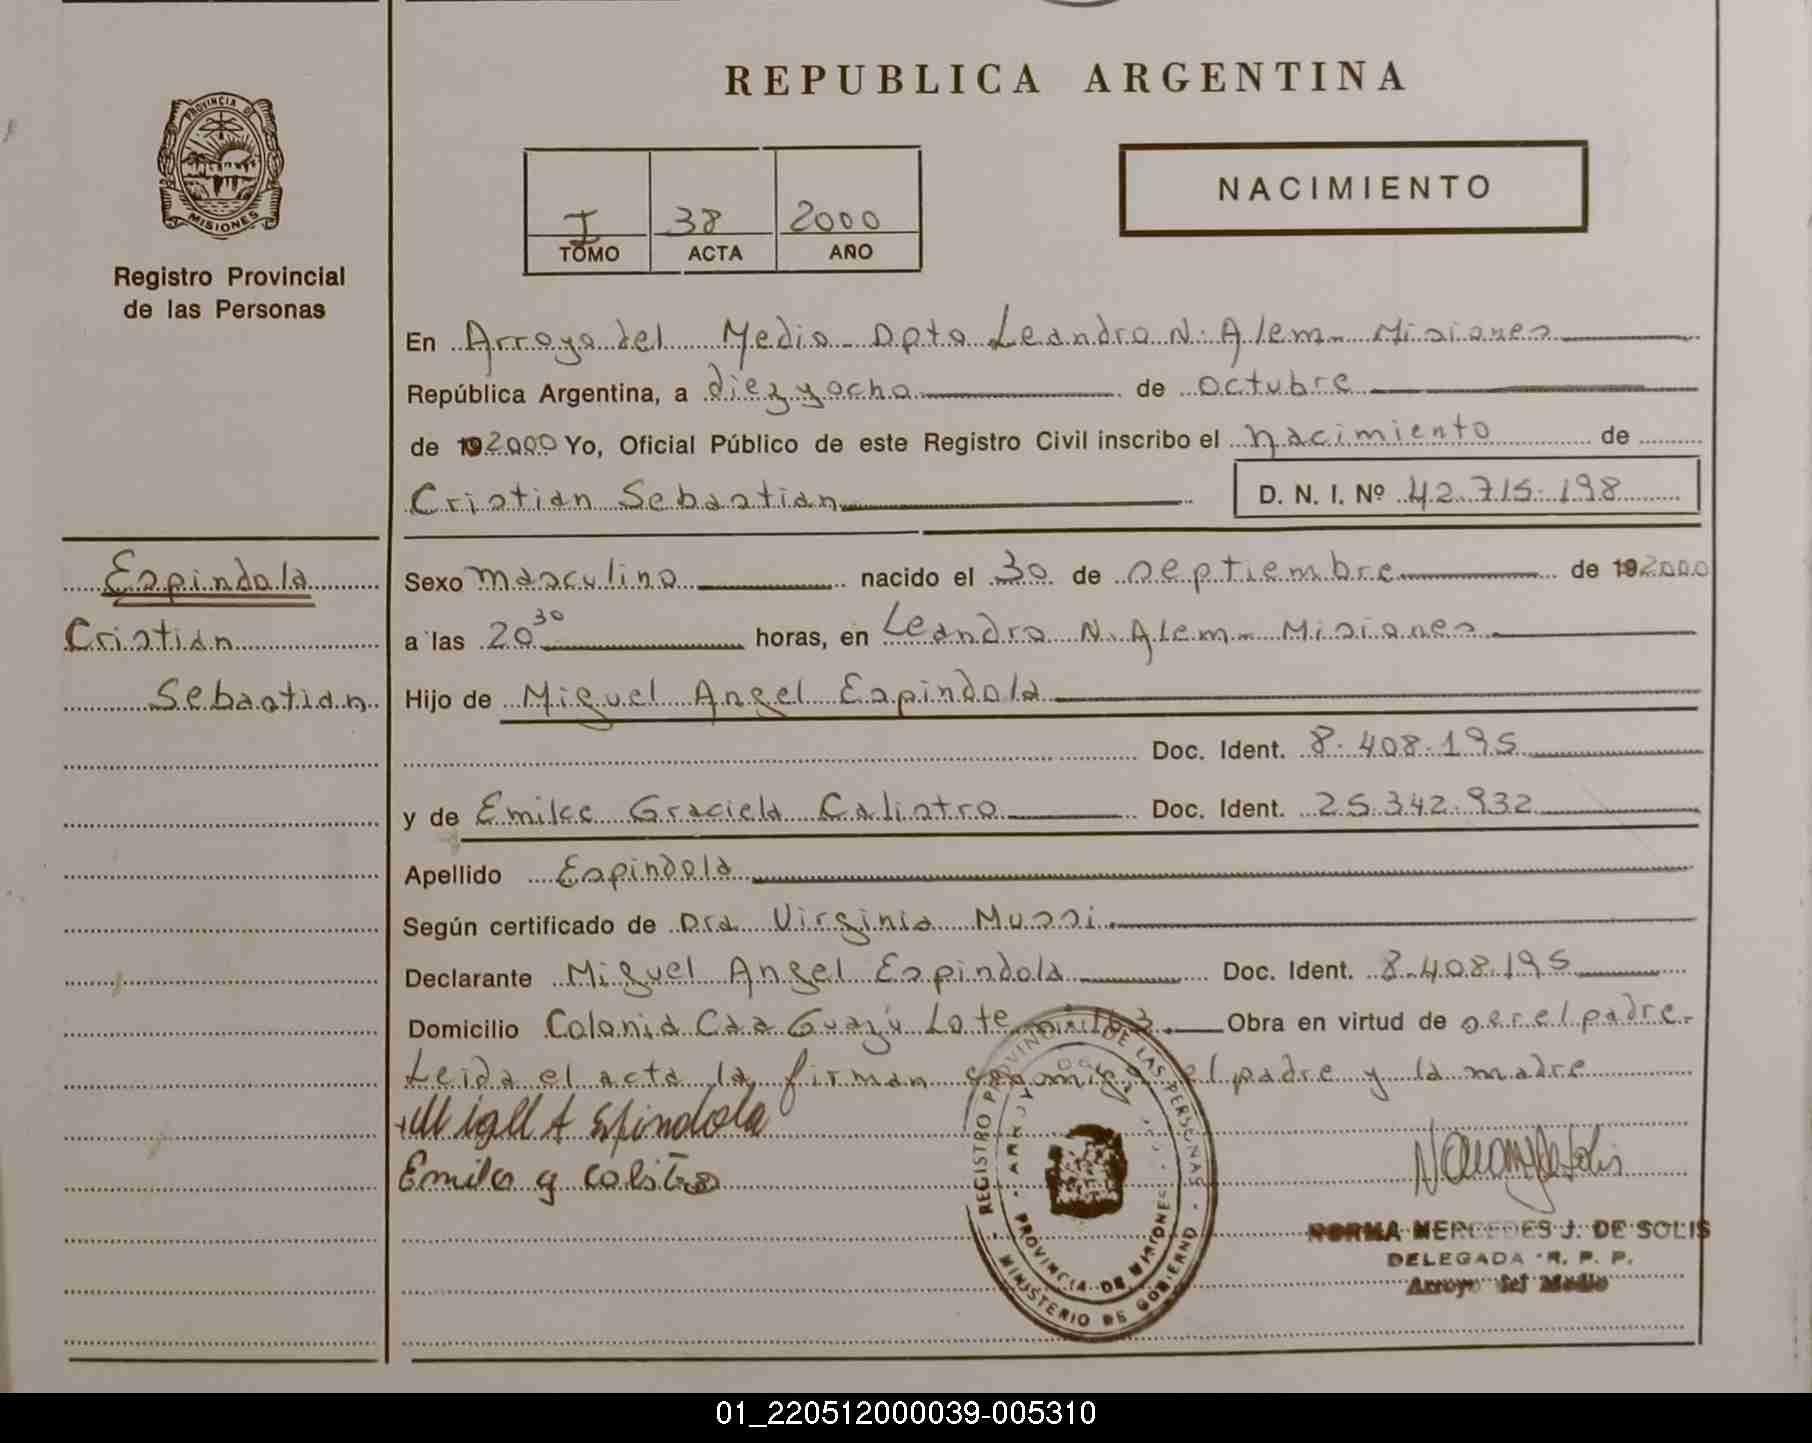 REPUBLICA ARGENTINA
PROVINCIA DE
MISIONES
Registro Provincial
de las Personas
NACIMIENTO
I 38 2000
TOMO ACTA AÑO
En Arroyo del Medio - Dpto Leandro N. Alem - Misiones
República Argentina, a diez y ocho de octubre
de 192000 Yo, Oficial Público de este Registro Civil inscribo el nacimiento de
Cristian Sebastian D. N. I. Nº 42.715.198
Espindola
Cristian
Sebastian
Sexo masculino nacido el 30 de septiembre de 192000
a las 20 30 horas, en Leandro N. Alem - Misiones
Hijo de Miguel Angel Espindola
Doc. Ident. 8.408.195
y de Emilce Graciela Calistro Doc. Ident. 25.342.932
Apellido Espindola
Según certificado de Dra Virginia Mussi
Declarante Miguel Angel Espindola Doc. Ident. 8.408.195
Domicilio Colonia Caa Guazú Lote Obra en virtud de ser el padre.
Leida el acta la firman el padre y la madre
A Espindola
REGISTRO PROVINCIAL DE LAS PERSONAS
PROVINCIA DE MISIONES
MINISTERIO DE GOBIERNO
NORMA MERCEDES J. DE SOLIS
DELEGADA R. P. P.
Arroyo del Medio
01_220512000039-005310